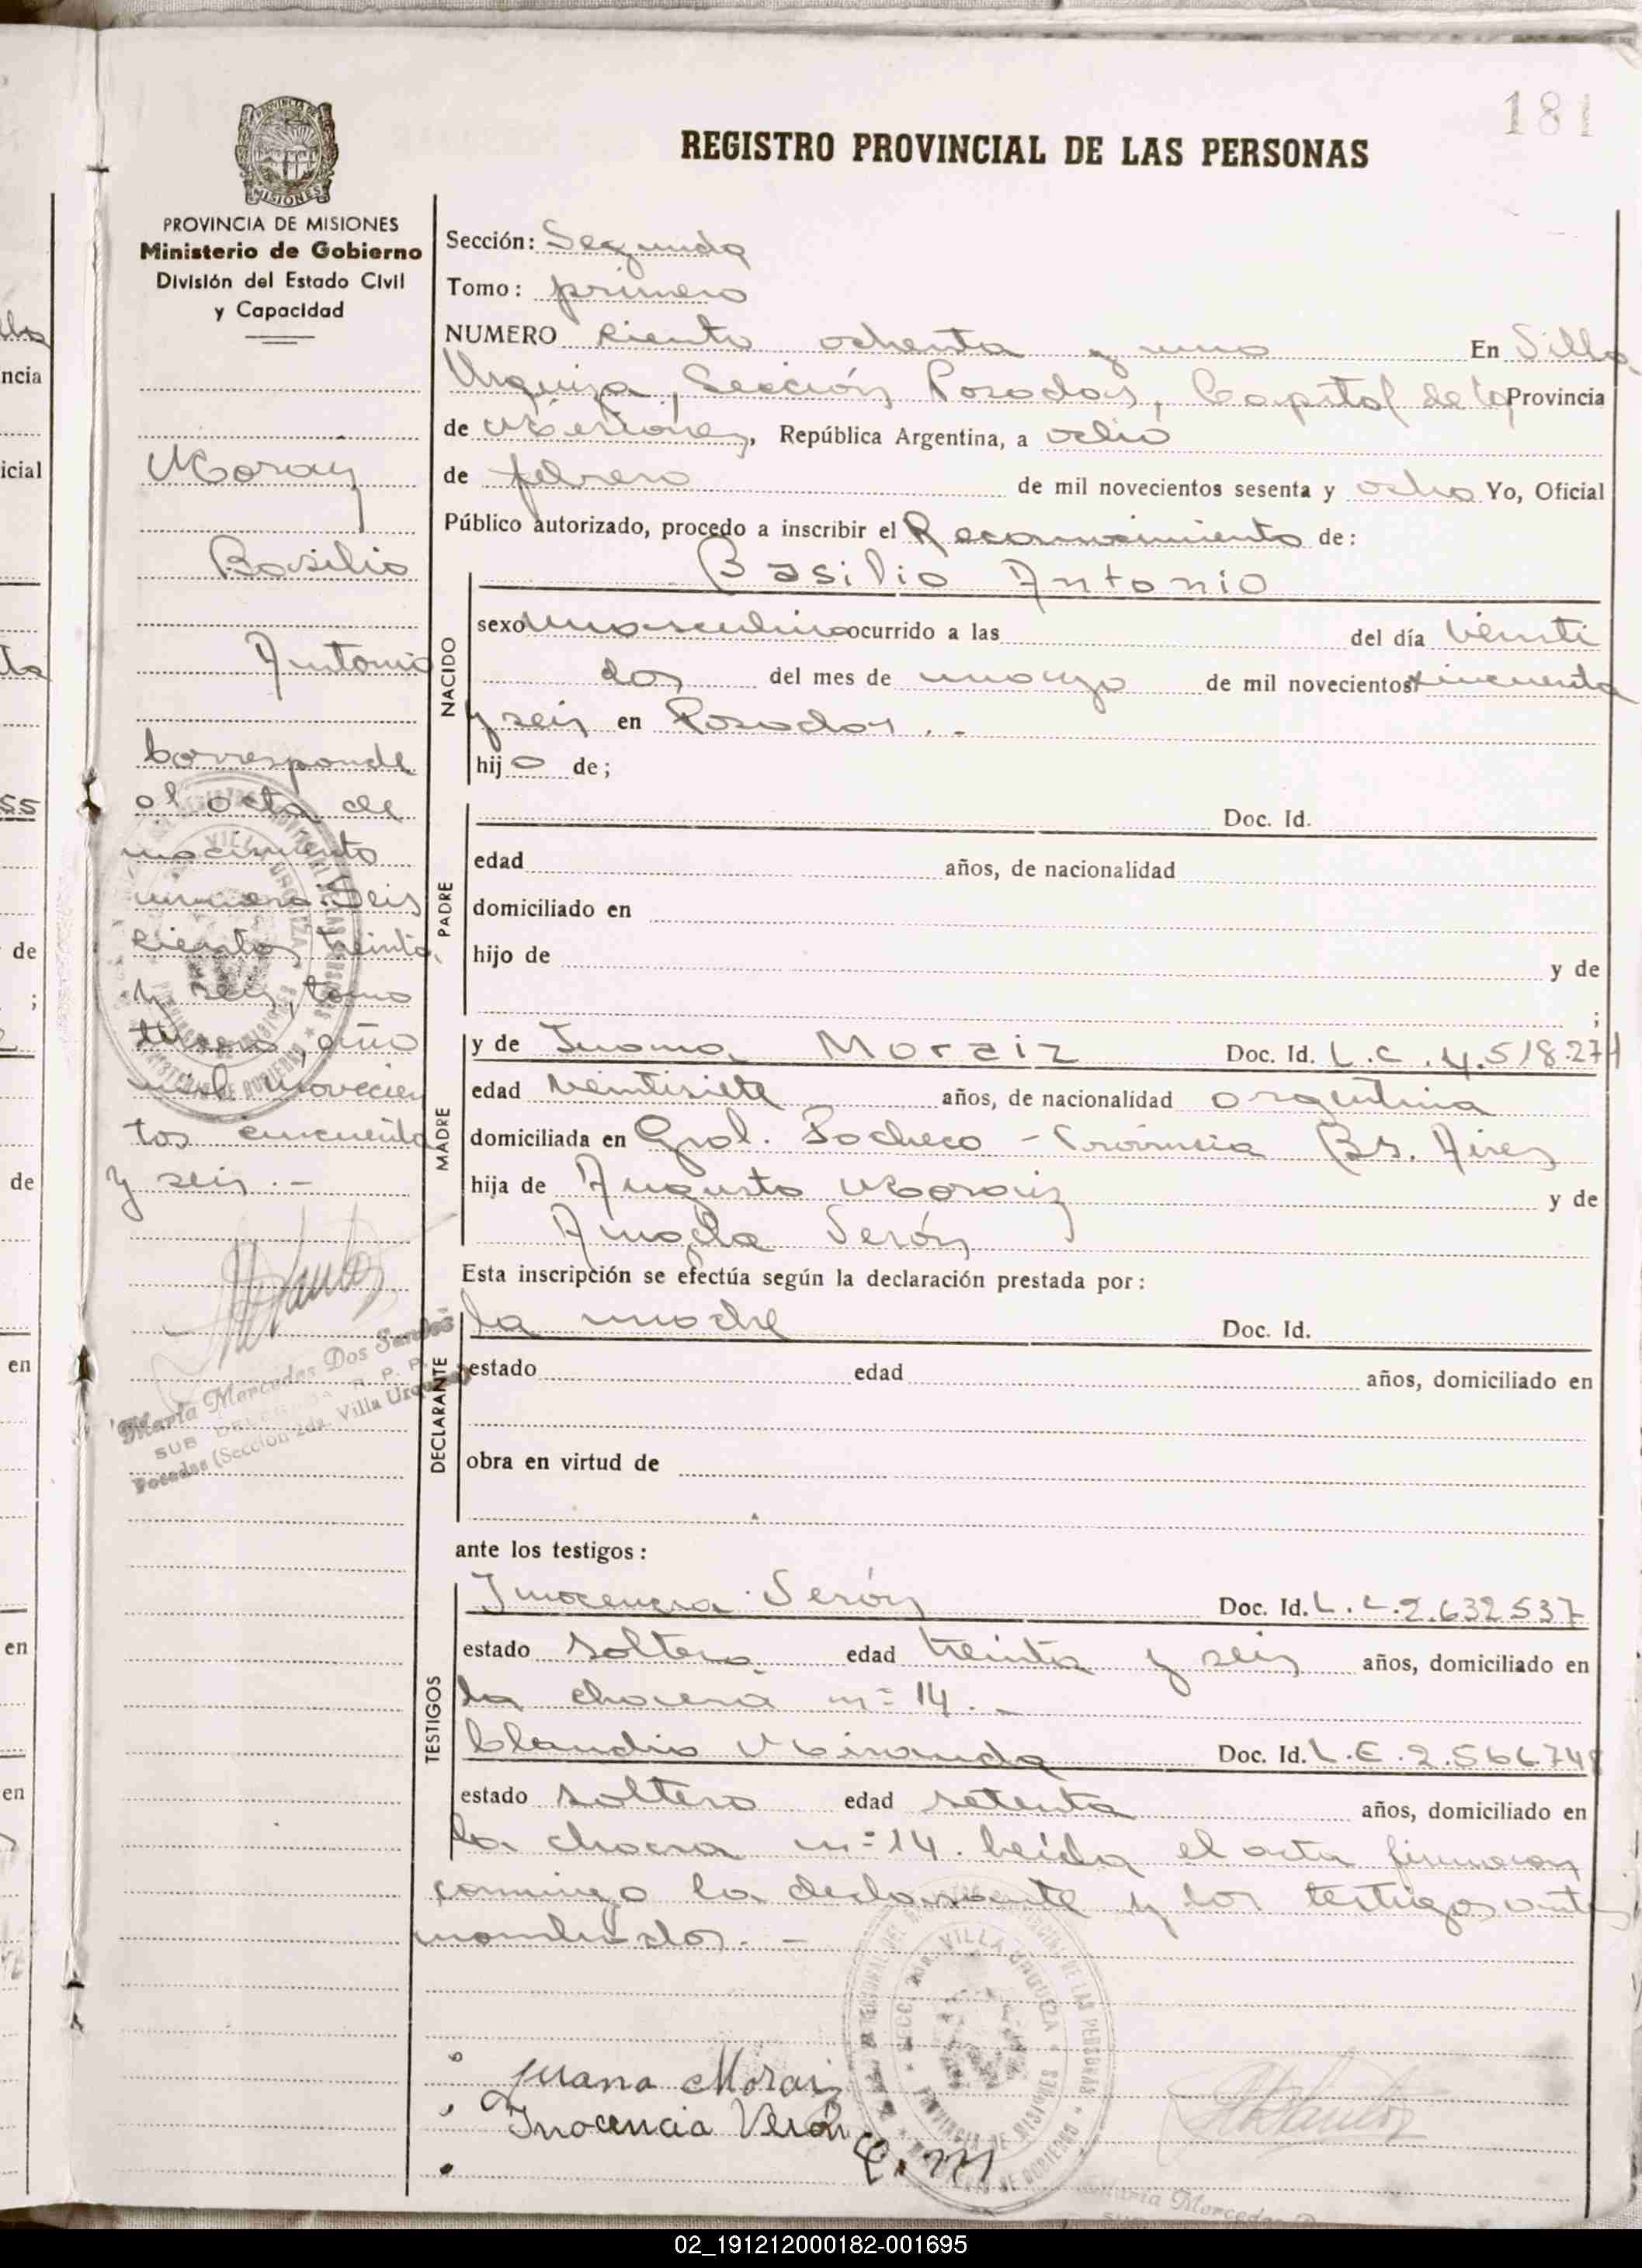 181
REGISTRO PROVINCIAL DE LAS PERSONAS
PROVINCIA DE MISIONES
Ministerio de Gobierno
División del Estado Civil
y Capacidad
Moraiz
Basilio
Antonio
Corresponde
al acta de
nacimiento
número Seis
cientos treinta
y seis, tomo
tercero, año
mil novecien
tos cincuenta
y seis.-
María Mercedes Dos Santos
SUB DELEGADA R. P. P.
Posadas (Sección 2da. Villa Urquiza)
Sección: Segunda
Tomo: primero
NUMERO ciento ochenta y uno En Villa
Urquiza, Sección Posadas, Capital de la Provincia
de Misiones, República Argentina, a ocho
de febrero de mil novecientos sesenta y ocho Yo, Oficial
Público autorizado, procedo a inscribir el Reconocimiento de:
NACIDO
Basilio Antonio
sexo masculino ocurrido a las del día veinti
dos del mes de marzo de mil novecientos cincuenta
y seis en Posadas . . -
hij o de;
PADRE
Doc. Id.
edad años, de nacionalidad
domiciliado en
hijo de y de
;
MADRE
y de Juana Moraiz Doc. Id. L.C.4.518.274
edad veintisiete años, de nacionalidad argentina
domiciliada en Gral. Pacheco - Provincia Bs. Aires
hija de Augusto Moraiz y de
Angela Verón
Esta inscripción se efectúa según la declaración prestada por:
DECLARANTE
la madre Doc. Id.
estado edad años, domiciliado en
obra en virtud de
ante los testigos:
TESTIGOS
Inocencia Verón Doc. Id. L.C.2.632.537
estado soltera edad treinta y seis años, domiciliado en
la chacra nº 14. -
Claudio Miranda Doc. Id. L.E.2.566.748
estado soltero edad setenta años, domiciliado en
la chacra nº 14. Leída el acta firmaron
conmigo la declarante y los testigos antes
nombrados. -
Juana Moraiz
Inocencia Verón
C. M
María Mercedes
02_191212000182-001695